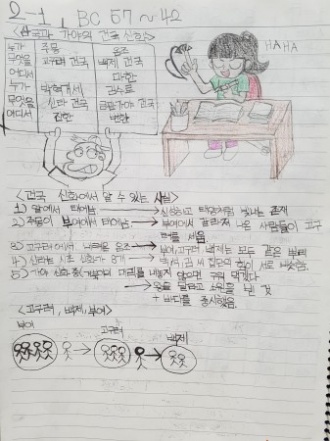 2-1, BC 57~42
<삼국과 가야의 건국 신화>
누가 주몽 온조
무엇을 고구려 건국 백제 건국
어디서 마한
누가 박혁거세 김수로
무엇을 신라 건국 금관가야 건국
어디서 진한 변한
HA HA
<건국 신화에서 알 수 있는 사실>
1) 알에서 태어남 → 신성하고 태양처럼 빛나는 존재
2) 주몽이 부여에서 태어남 → 부여에서 갈라져 나온 사람들이 고구
려를 세움.
3) 고구려에서 내려온 온조 → 부여, 고구려, 백제는 모두 같은 뿌리
4) 신라는 시조 신화가 3개 → 박, 석, 김 씨 집단의 힘이 서로 비슷함.
5) 가야 신화 중 (거북아 머리를 내놓지 않으면 구워 먹겠다.
→ 왕을 달라고 소원을 빈 것
+ 바다를 중시했음.
<고구려, 백제, 부여>
부여 고구려 백제